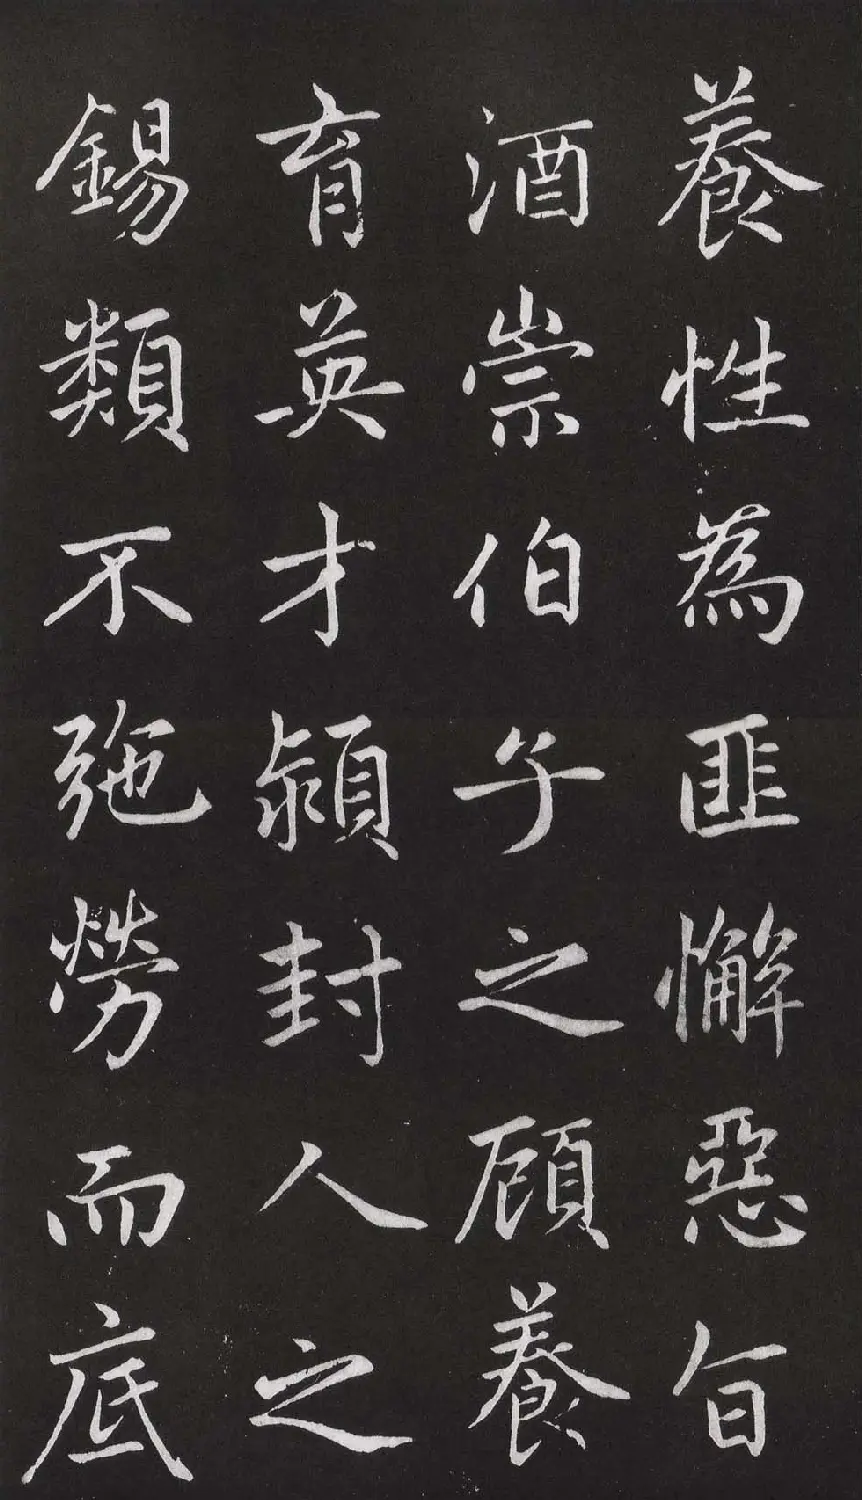 養性為匪懈惡旨
酒崇伯子之顾養
育英才潁封人之
錫類不弛勞而底